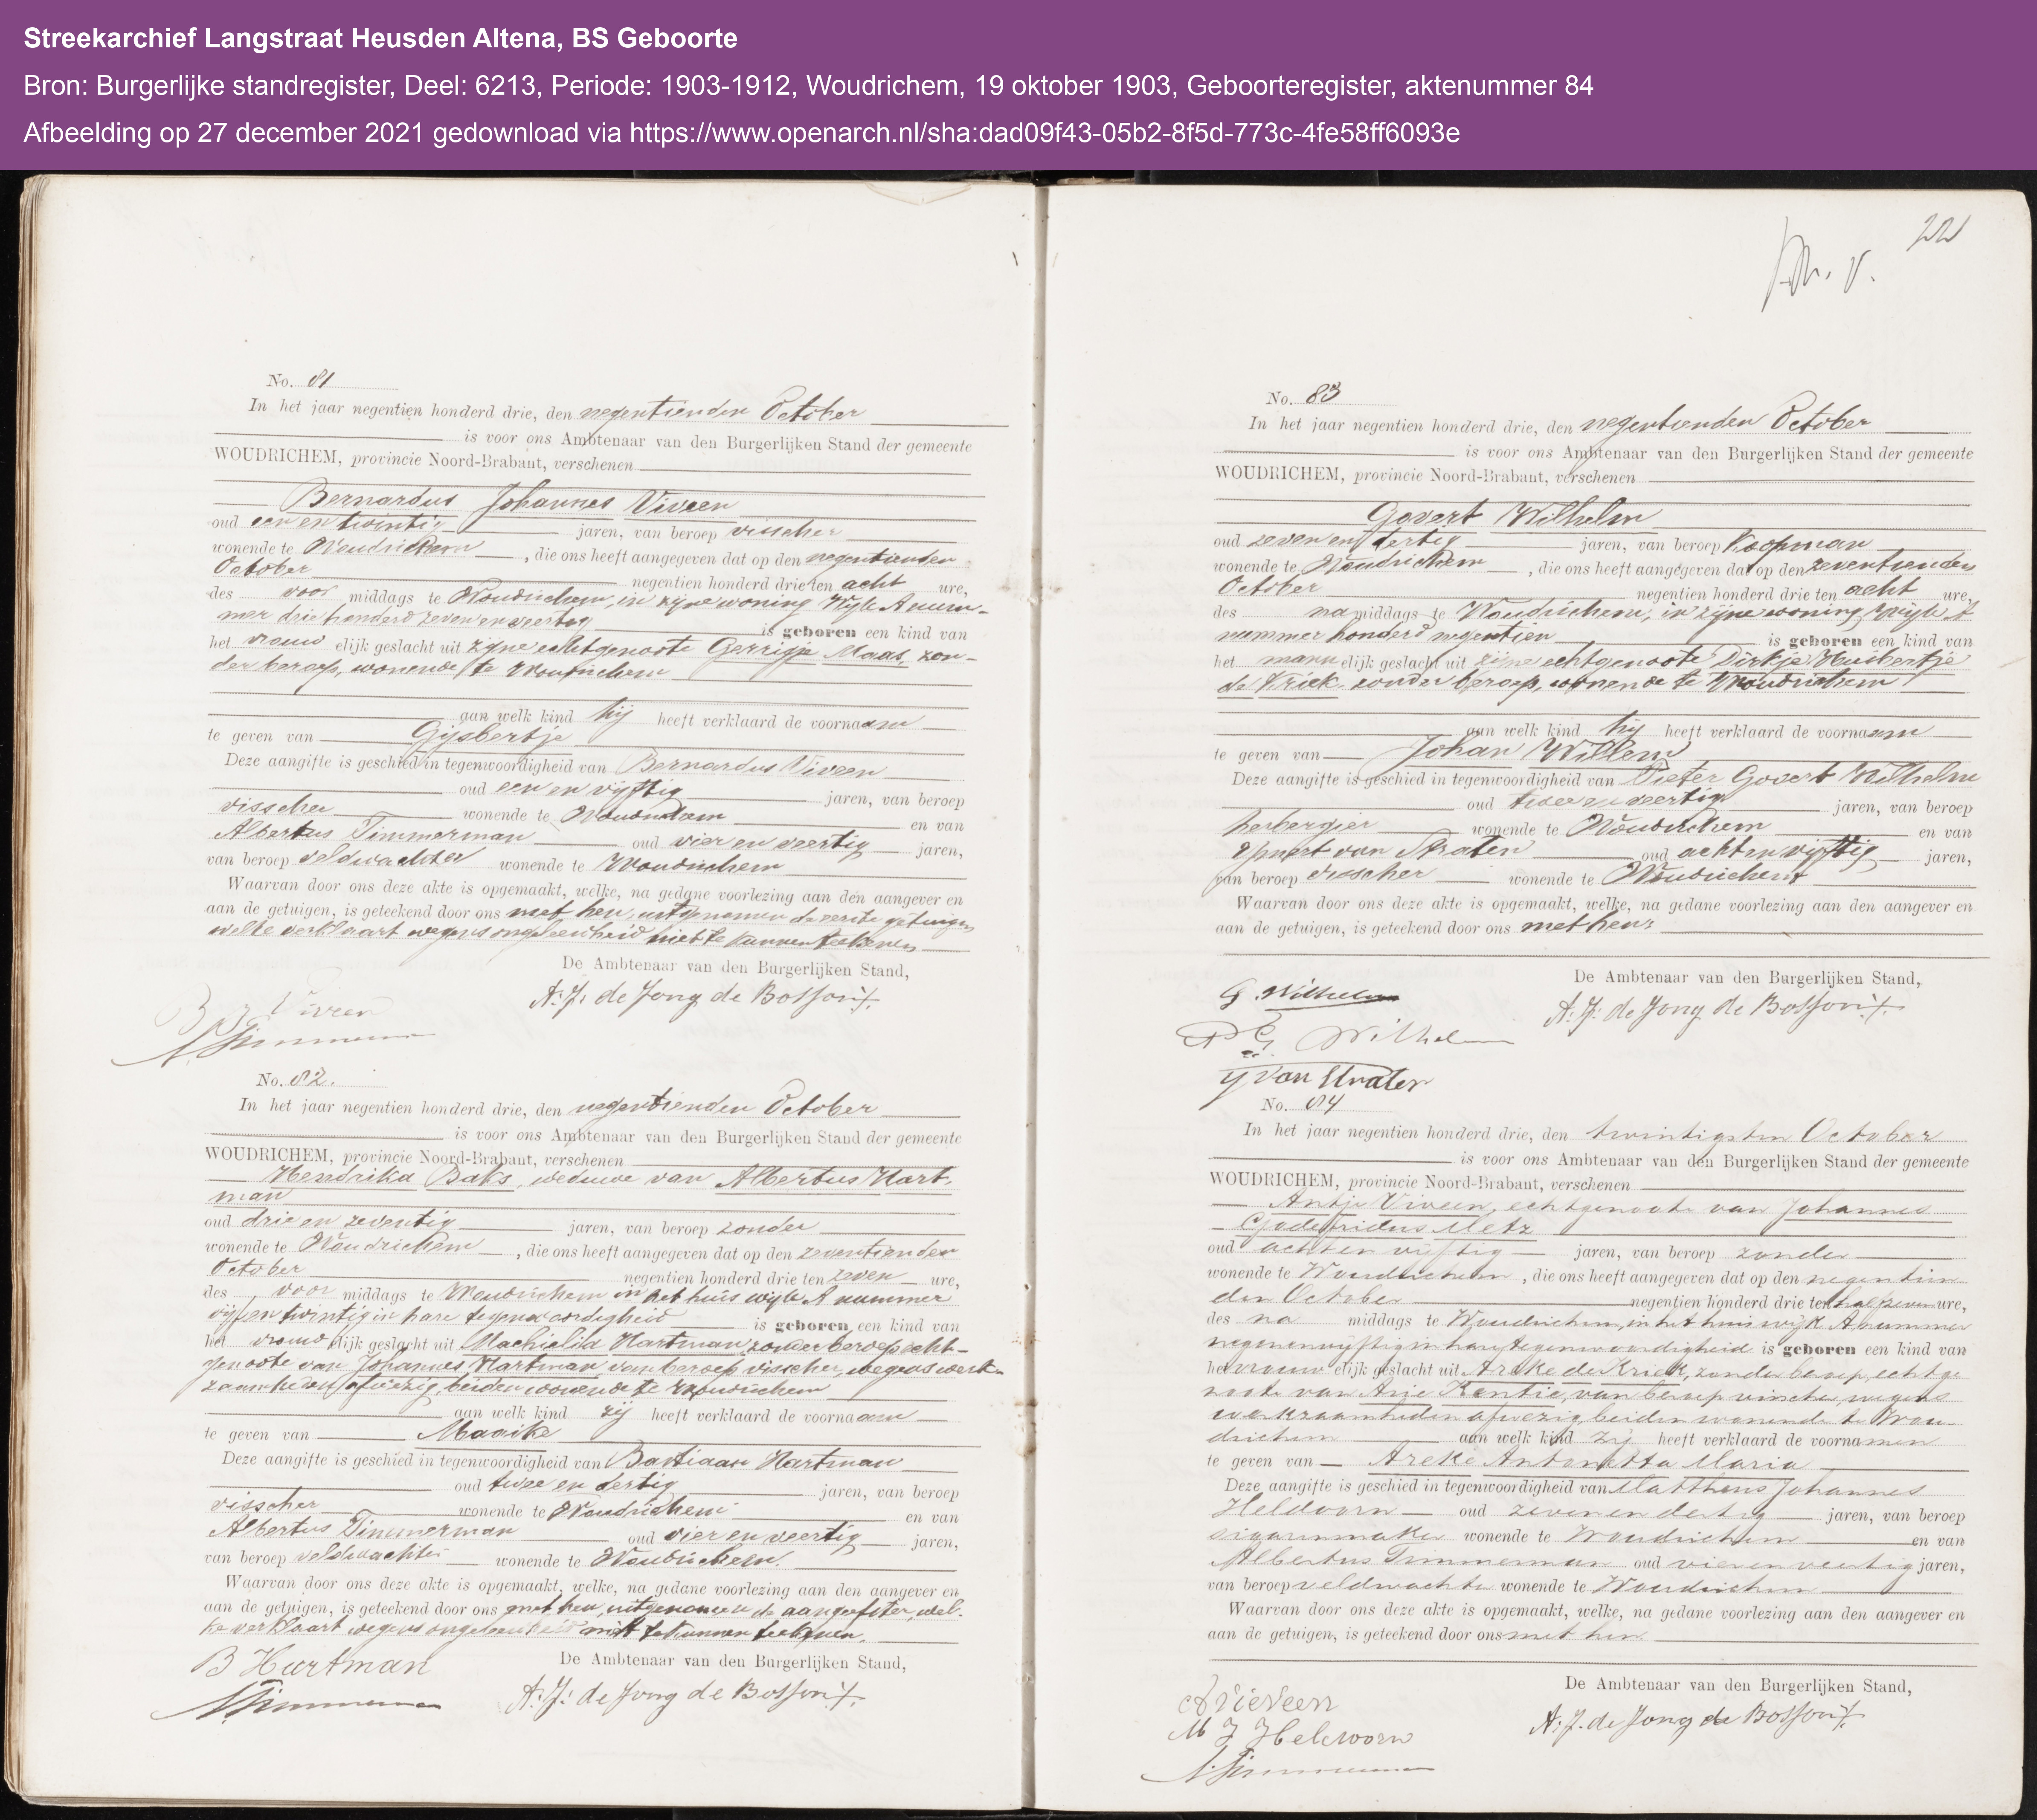 Streekarchief Langstraat Heusden Altena, BS Geboorte
Bron: Burgerlijke standregister, Deel: 6213, Periode: 1903-1912, Woudrichem, 19 oktober 1903, Geboorteregister, aktenummer 84
Afbeelding op 27 december 2021 gedownload via https://www.openarch.nl/sha:dad09f43-05b2-8f5d-773c-4fe58ff6093e
No. 81
In het jaar negentien honderd drie, den negentienden October
is voor ons Ambtenaar van den Burgerlijken Stand der gemeente
WOUDRICHEM, provincie Noord-Brabant, verschenen
Bernardus Johannes Viveen
oud een en twintig jaren, van beroep visscher
wonende te Woudrichem, die ons heeft aangegeven dat op den negentienden
October negentien honderd drie ten acht ure,
des voor middags te Woudrichem, in zijne woning Wijk A num-
mer driehonderd zeven en veertig is geboren een kind van
het vrouwelijk geslacht uit zijne echtgenoote Gerrigje Maas, zon-
der beroep, wonende te Woudrichem
aan welk kind hij heeft verklaard de voornaam
te geven van Gijsbertje
Deze aangifte is geschied in tegenwoordigheid van Bernardus Viveen
oud een en vijftig jaren, van beroep
visscher wonende te Woudrichem en van
Albertus Timmerman oud vier en veertig jaren,
van beroep veldwachter wonende te Woudrichem
Waarvan door ons deze akte is opgemaakt, welke, na gedane voorlezing aan den aangever en
aan de getuigen, is geteekend door ons met hen, uitgenomen de eerste getuigen
welke verklaart wegens ongeleerdheid niet te kunnen teekenen
De Ambtenaar van den Burgerlijken Stand,
A. J. de Jong de Bosson
B J Viveen
A Timmerman
No. 82.
In het jaar negentien honderd drie, den negentienden October
is voor ons Ambtenaar van den Burgerlijken Stand der gemeente
WOUDRICHEM, provincie Noord-Brabant, verschenen
Hendrika Baks, weduwe van Albertus Hart-
man
oud drie en zeventig jaren, van beroep zonder
wonende te Woudrichem, die ons heeft aangegeven dat op den zeventienden
October negentien honderd drie ten zeven ure,
des voor middags te Woudrichem in het huis wijk A nummer
vijf en twintig in hare tegenwoordigheid is geboren een kind van
het vrouwelijk geslacht uit Machielda Hartman, zonder beroep echt-
genoote van Johannes Hartman van beroep visscher, wegens werk-
zaamheden afwezig, beiden wonende te Woudrichem
aan welk kind zij heeft verklaard de voornaam
te geven van Maaike
Deze aangifte is geschied in tegenwoordigheid van Bastiaan Hartman
oud twee en dertig jaren, van beroep
visscher wonende te Woudrichem en van
Albertus Timmerman oud vier en veertig jaren,
van beroep veldwachter wonende te Woudrichem.
Waarvan door ons deze akte is opgemaakt, welke, na gedane voorlezing aan den aangever en
aan de getuigen, is geteekend door ons met hen, uitgenomen de aangeefster, wel-
ke verklaart wegens ongeleerdheid niet te kunnen teekenen.
De Ambtenaar van den Burgerlijken Stand,
A. J. de Jong de Bosson
B Hartman
A Timmerman
22
No. 83
In het jaar negentien honderd drie, den negentienden October
is voor ons Ambtenaar van den Burgerlijken Stand der gemeente
WOUDRICHEM, provincie Noord-Brabant, verschenen
Govert Wilhelm
oud zeven en dertig jaren, van beroep Koopman
wonende te Woudrichem, die ons heeft aangegeven dat op den zeventienden
October negentien honderd drie ten acht ure,
des na middags te Woudrichem, in zijne woning, wijk A
nummer honderd negentien is geboren een kind van
het mannelijk geslacht uit zijne echtgenoote Dirkje Huibertje
de Kriek, zonder beroep, wonende te Woudrichem
aan welk kind hij heeft verklaard de voornaam
te geven van Johan Willem
Deze aangifte is geschied in tegenwoordigheid van Pieter Govert Wilhelm
oud twee en veertig jaren, van beroep
herbergier wonende te Woudrichem en van
van Straten oud acht en vijftig jaren,
van beroep visscher wonende te Woudrichem
Waarvan door ons deze akte is opgemaakt, welke, na gedane voorlezing aan den aangever en
aan de getuigen, is geteekend door ons met hen
De Ambtenaar van den Burgerlijken Stand,
A. J. de Jong de Bosson
G. Wilhelm
P G Wilhelm
Y van Straten
No. 84
In het jaar negentien honderd drie, den twintigsten October
is voor ons Ambtenaar van den Burgerlijken Stand der gemeente
WOUDRICHEM, provincie Noord-Brabant, verschenen
Antje Viveen, echtgenoote van Johannes
Godefridus Metz
oud acht en vijftig jaren, van beroep zonder
wonende te Woudrichem, die ons heeft aangegeven dat op den negentien
den October negentien honderd drie ten half zeven ure,
des na middags te Woudrichem, in het huis wijk A nummer
negenenvijftig in hare tegenwoordigheid is geboren een kind van
het vrouwelijk geslacht uit Areke de Kriek, zonder beroep, echtge
noote van Arie Kentie, van beroep visscher, wegens
werkzaamheden afwezig, beiden wonende te Wou
drichem aan welk kind zij heeft verklaard de voornamen
te geven van Areke Antonetta Maria
Deze aangifte is geschied in tegenwoordigheid van Mattheus Johannes
Heldoorn oud zeven en dertig jaren, van beroep
sigarenmaker wonende te Woudrichem en van
Albertus Timmerman oud vier en veertig jaren,
van beroep veldwachter wonende te Woudrichem
Waarvan door ons deze akte is opgemaakt, welke, na gedane voorlezing aan den aangever en
aan de getuigen, is geteekend door ons met hen.
De Ambtenaar van den Burgerlijken Stand,
A. J. de Jong de Bosson
A Vieveen
M J Heldoorn
A Timmerman